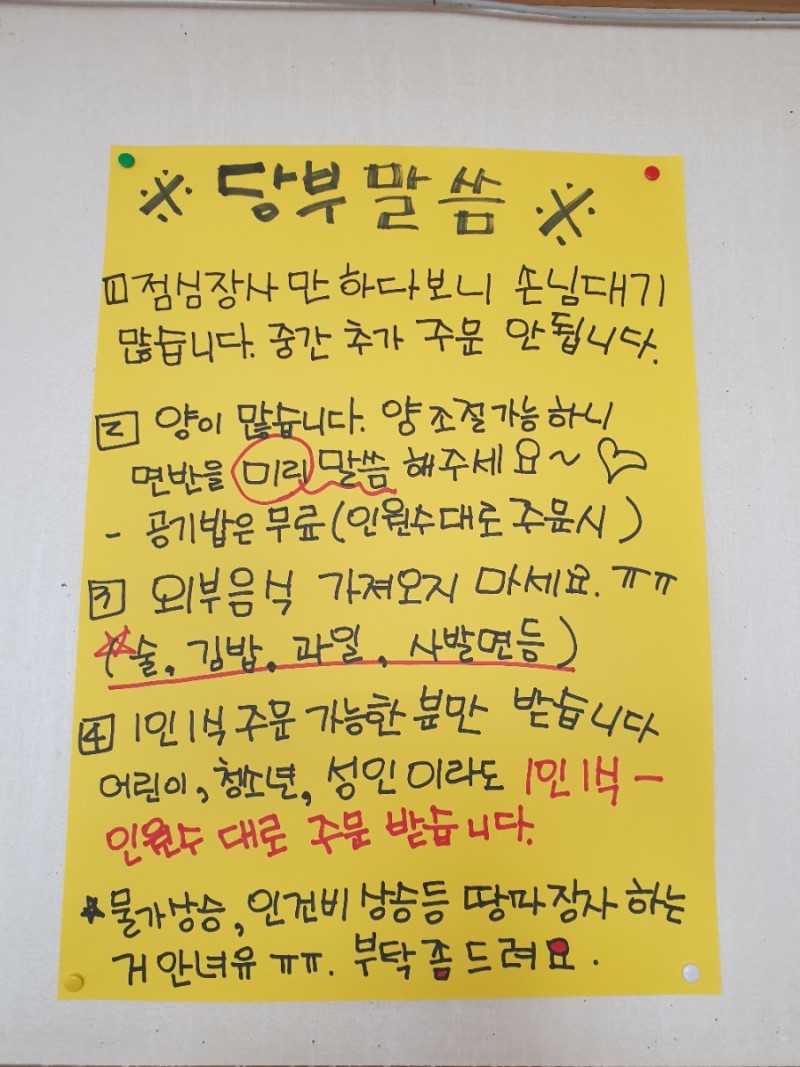 ※ 당부말씀 ※
1 점심장사만 하다보니 손님대기
많습니다. 중간 추가 주문 안됩니다.
2 양이 많습니다. 양조절가능하니
면반을 미리 말씀 해주세요~ ♡
- 공기밥은 무료(인원수대로 주문시)
3 외부음식 가져오지 마세요. ㅠㅠ
☆(술, 김밥, 과일, 사발면등)
4 1인1식 주문 가능한 분만 받습니다
어린이, 청소년, 성인이라도 1인1식 -
인원수 대로 주문 받습니다.
☆물가상승, 인건비상승등 땅파장사 하는
거 안녀유 ㅠㅠ. 부탁 좀 드려요.